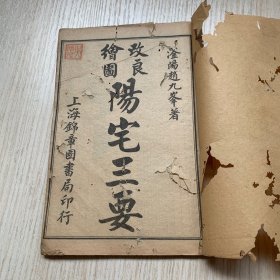 滏陽趙九峯著
改良
繪圖
陽宅三要
上海錦章圖書局印行